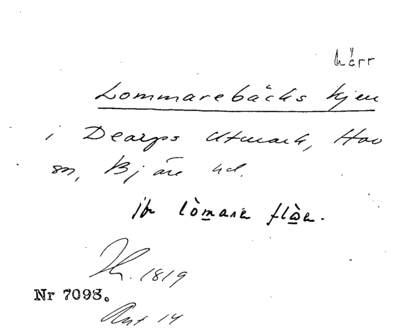 kärr
Lommarebäcks kjen
i Dearps Utmark, Hov
sn, Bjäre hd.
jfr lòmara flǫa.
1819
Nr 7098.
Ant 14